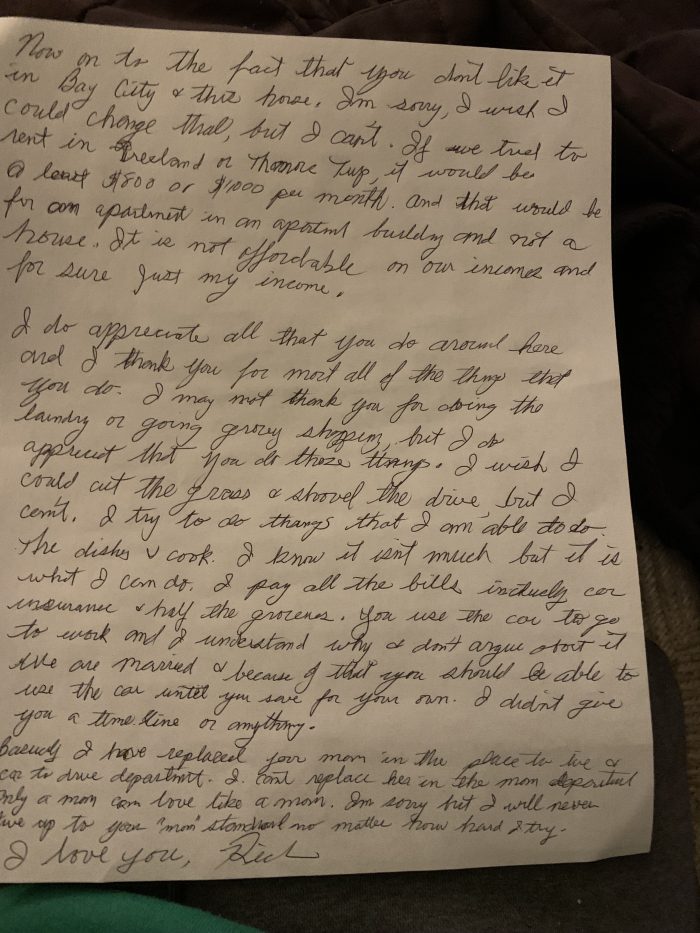 Now on to the fact that you don't like it
in Bay City & this house. I'm sorry, I wish I
could change that, but I can't. If we tried to
rent in Freeland or Thomas Twp, it would be
a least $800 or $1000 per month. and that would be
for an apartment in an apartmt building and not a
house. It is not affordable on our incomes and
for sure just my income.
I do appreciate all that you do around here
and I thank you for most all of the things that
you do. I may not thank you for doing the
laundry or going grocery shopping, but I do
appreciat that you do these things. I wish I
could cut the grass & shovel the drive, but I
can't. I try to do things that I am able to do.
The dishes & cook. I know it isn't much but it is
what I can do. I pay all the bills including car
insurance & half the groceries. You use the car to go
to work and I understand why & don't argue about it
We are married & because of that you should be able to
use the car until you save for your own. I didn't give
you a time line or anything.
Basically I have replaced your mom in the place to live &
car to drive department. I cant replace her in the mom department
Only a mom can love like a mom. I'm sorry but I will never
live up to your "mom" standard no matter how hard I try.
I love you,